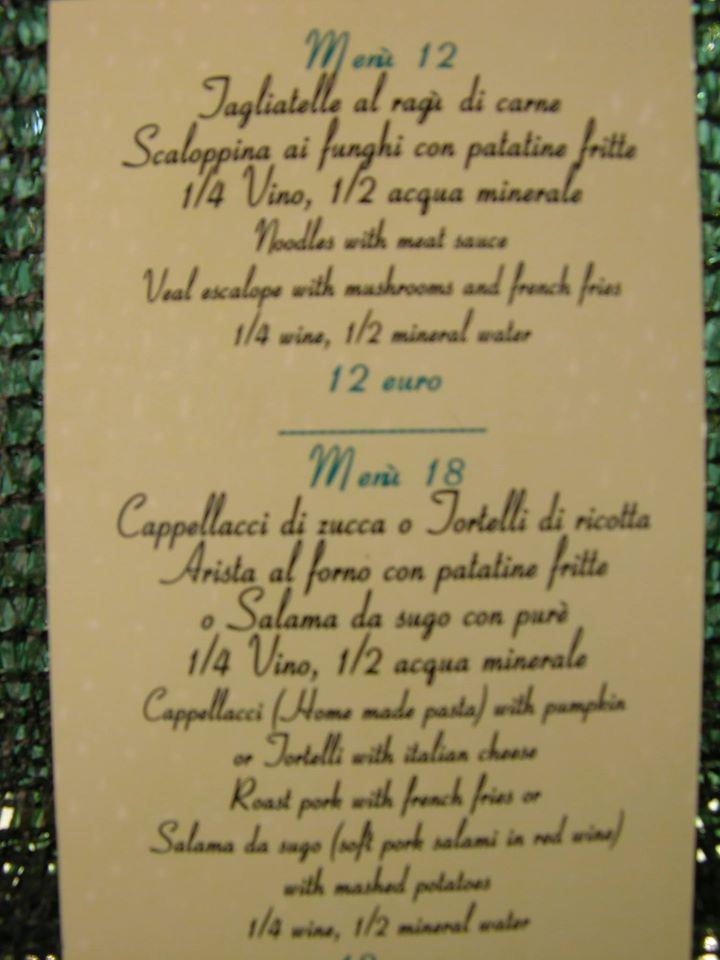 Menù 12
Tagliatelle al ragù di carne
Scaloppina ai funghi con patatine fritte
1/4 Vino, 1/2 acqua minerale
Noodles with meat sauce
Veal escalope with mushrooms and french fries
1/4 wine, 1/2 mineral water
12 euro
Menù 18
Cappellacci di zucca o Tortelli di ricotta
Arista al forno con patatine fritte
o Salama da sugo con purè
1/4 Vino, 1/2 acqua minerale
Cappellacci (Home made pasta) with pumpkin
or Tortelli with italian cheese
Roast pork with french fries or
Salama da sugo (soft pork salami in red wine)
with mashed potatoes
1/4 wine, 1/2 mineral water